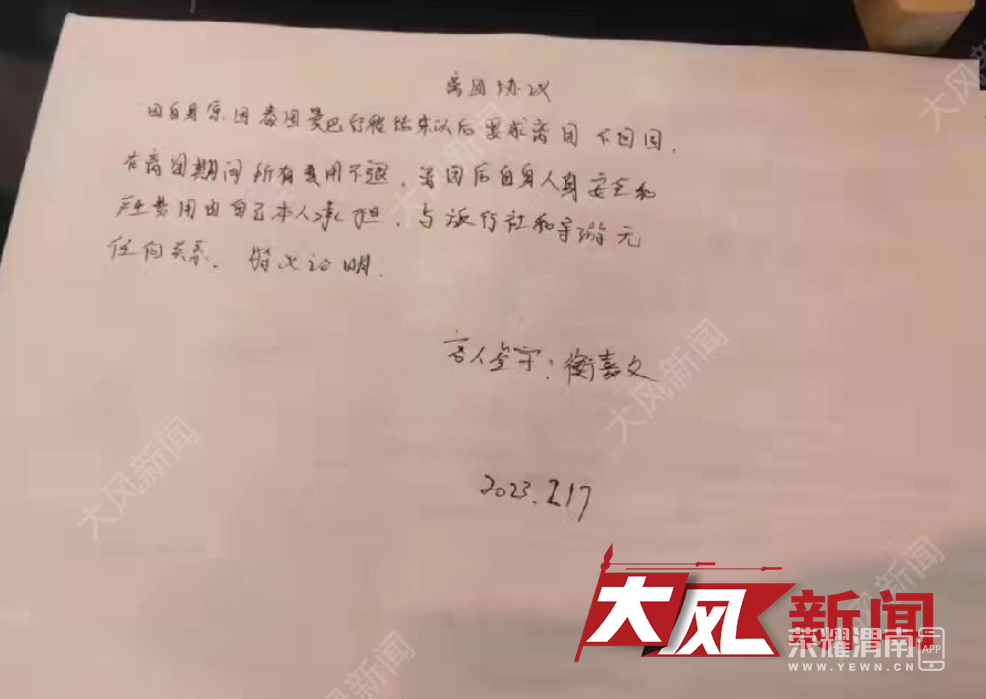 离团协议
因自身原因泰国曼巴行程结束以后要求离团不回国.
在离团期间所有费用不退. 离团后自身人身安全和
一旺费用由自己本人承担, 与旅行社和导游无
任何关系. 特此证明.
客人签字: 衡嘉文
2023.2.17
大风新闻
大风新闻
大风新闻
大风新闻
大风新闻
大风新闻
荣耀渭南APP
WWW.YEWN.CN